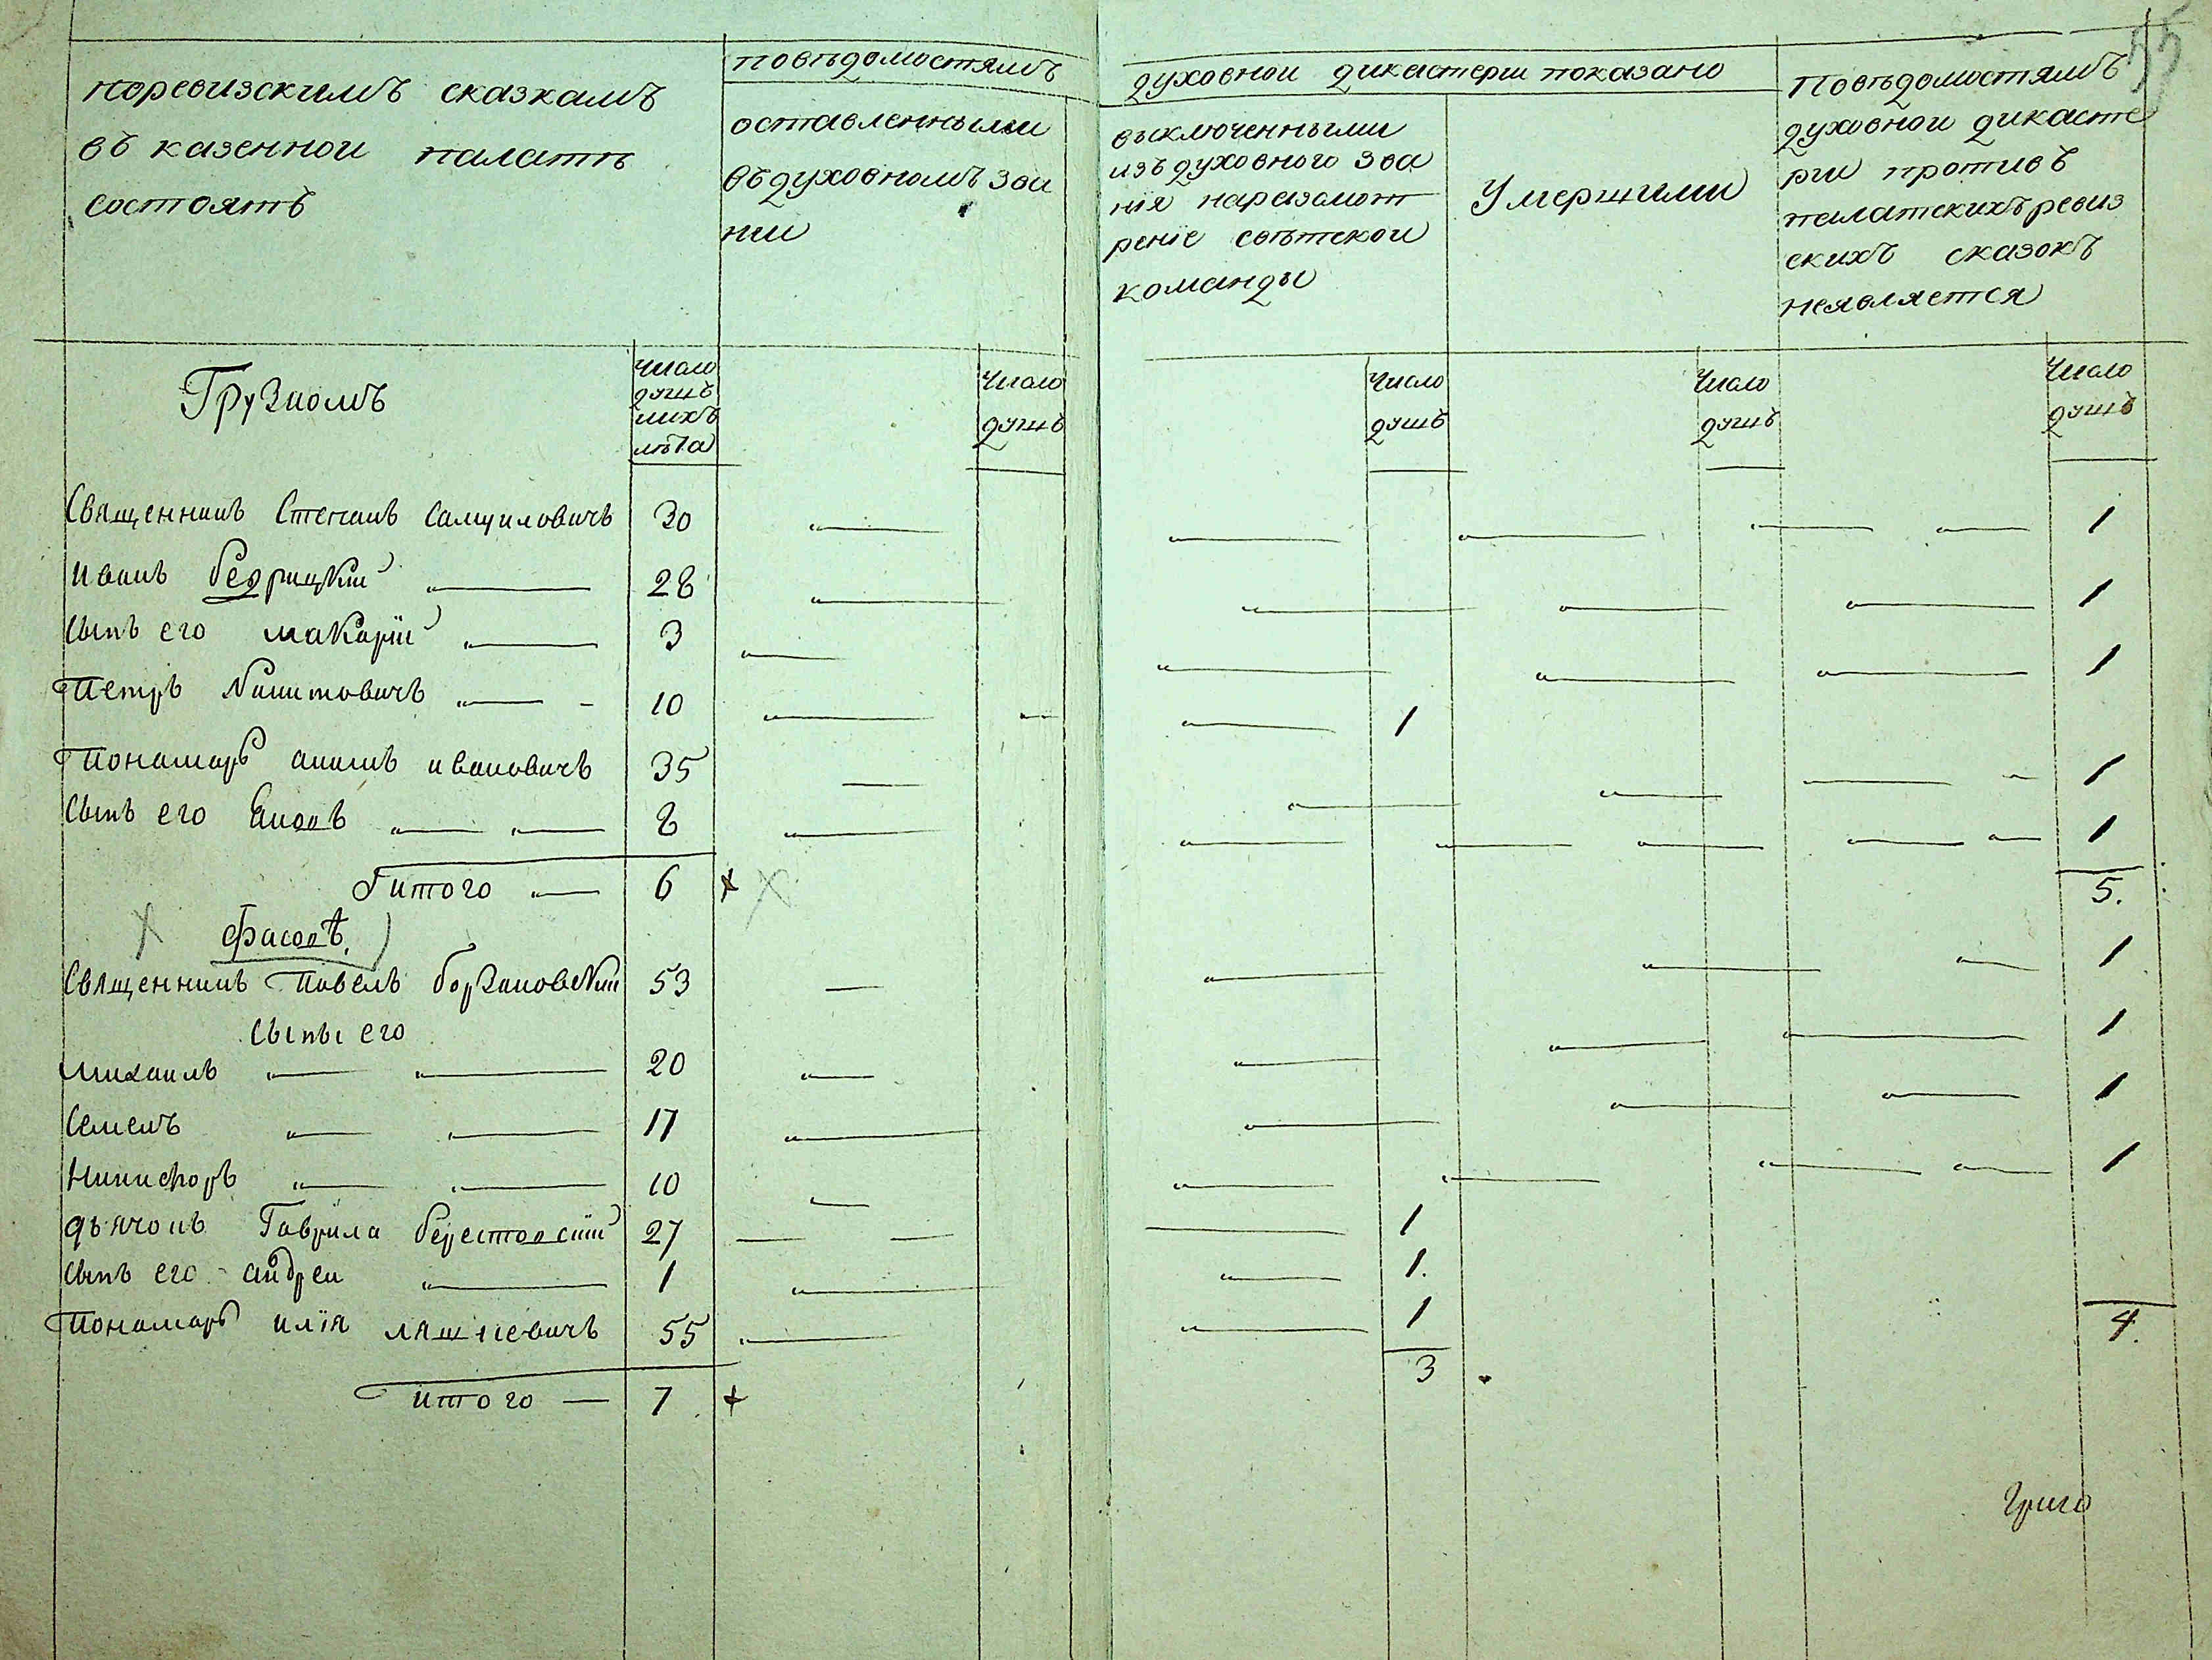 поревизскимъ сказкамъ
въ казенной палатѣ
состоятъ
повѣдомостямъ
оставленными
въ духовномъ зва
нии
55
духовной дикастерии показано
выключенными
изъ духовного зва
нія наразсмот
реніе свѣтской
команды
Умершими
Повѣдомостямъ
духовной дикасте
рии противъ
палатскихъ ревиз
скихъ сказокъ
неявляется
Грузкомъ
число
душъ
ихъ
лѣта
число
душъ
число
душъ
число
душъ
число
душъ
Священникъ Степанъ Самуиловичъ 30 1
Иванъ Бедрицкий 28 1
Сынъ его Макарїй 3 1
Петръ Никитовичъ 10 1
Пономарь Иванъ Ивановичъ 35 1
Сынъ его Яковъ 8 1
Итого 6 5.
Фасовѣ
Священникъ Павелъ Борзаковский 53 1
Сыны его
Михаилъ 20 1
Семенъ 17 1
Никифоръ 10 1
Дьячокъ Гаврила Берестовский 27 1
Сынъ его Андрей 1 1.
Пономарь Илїя Ляшкевичъ 55 1
3 4.
Итого 7
Григо